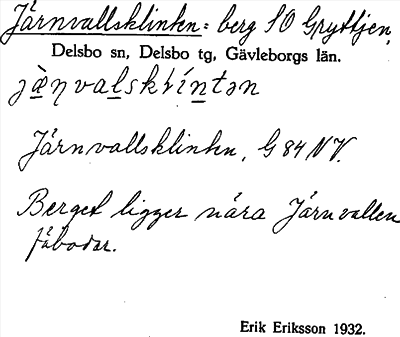 Järnvallsklinten: berg SO Gryttjen,
Delsbo sn, Delsbo tg, Gävleborgs län.
Järnvallsklinten, G 84 NV.
Berget ligger nära Järnvallen
fäbodar.
Erik Eriksson 1932.